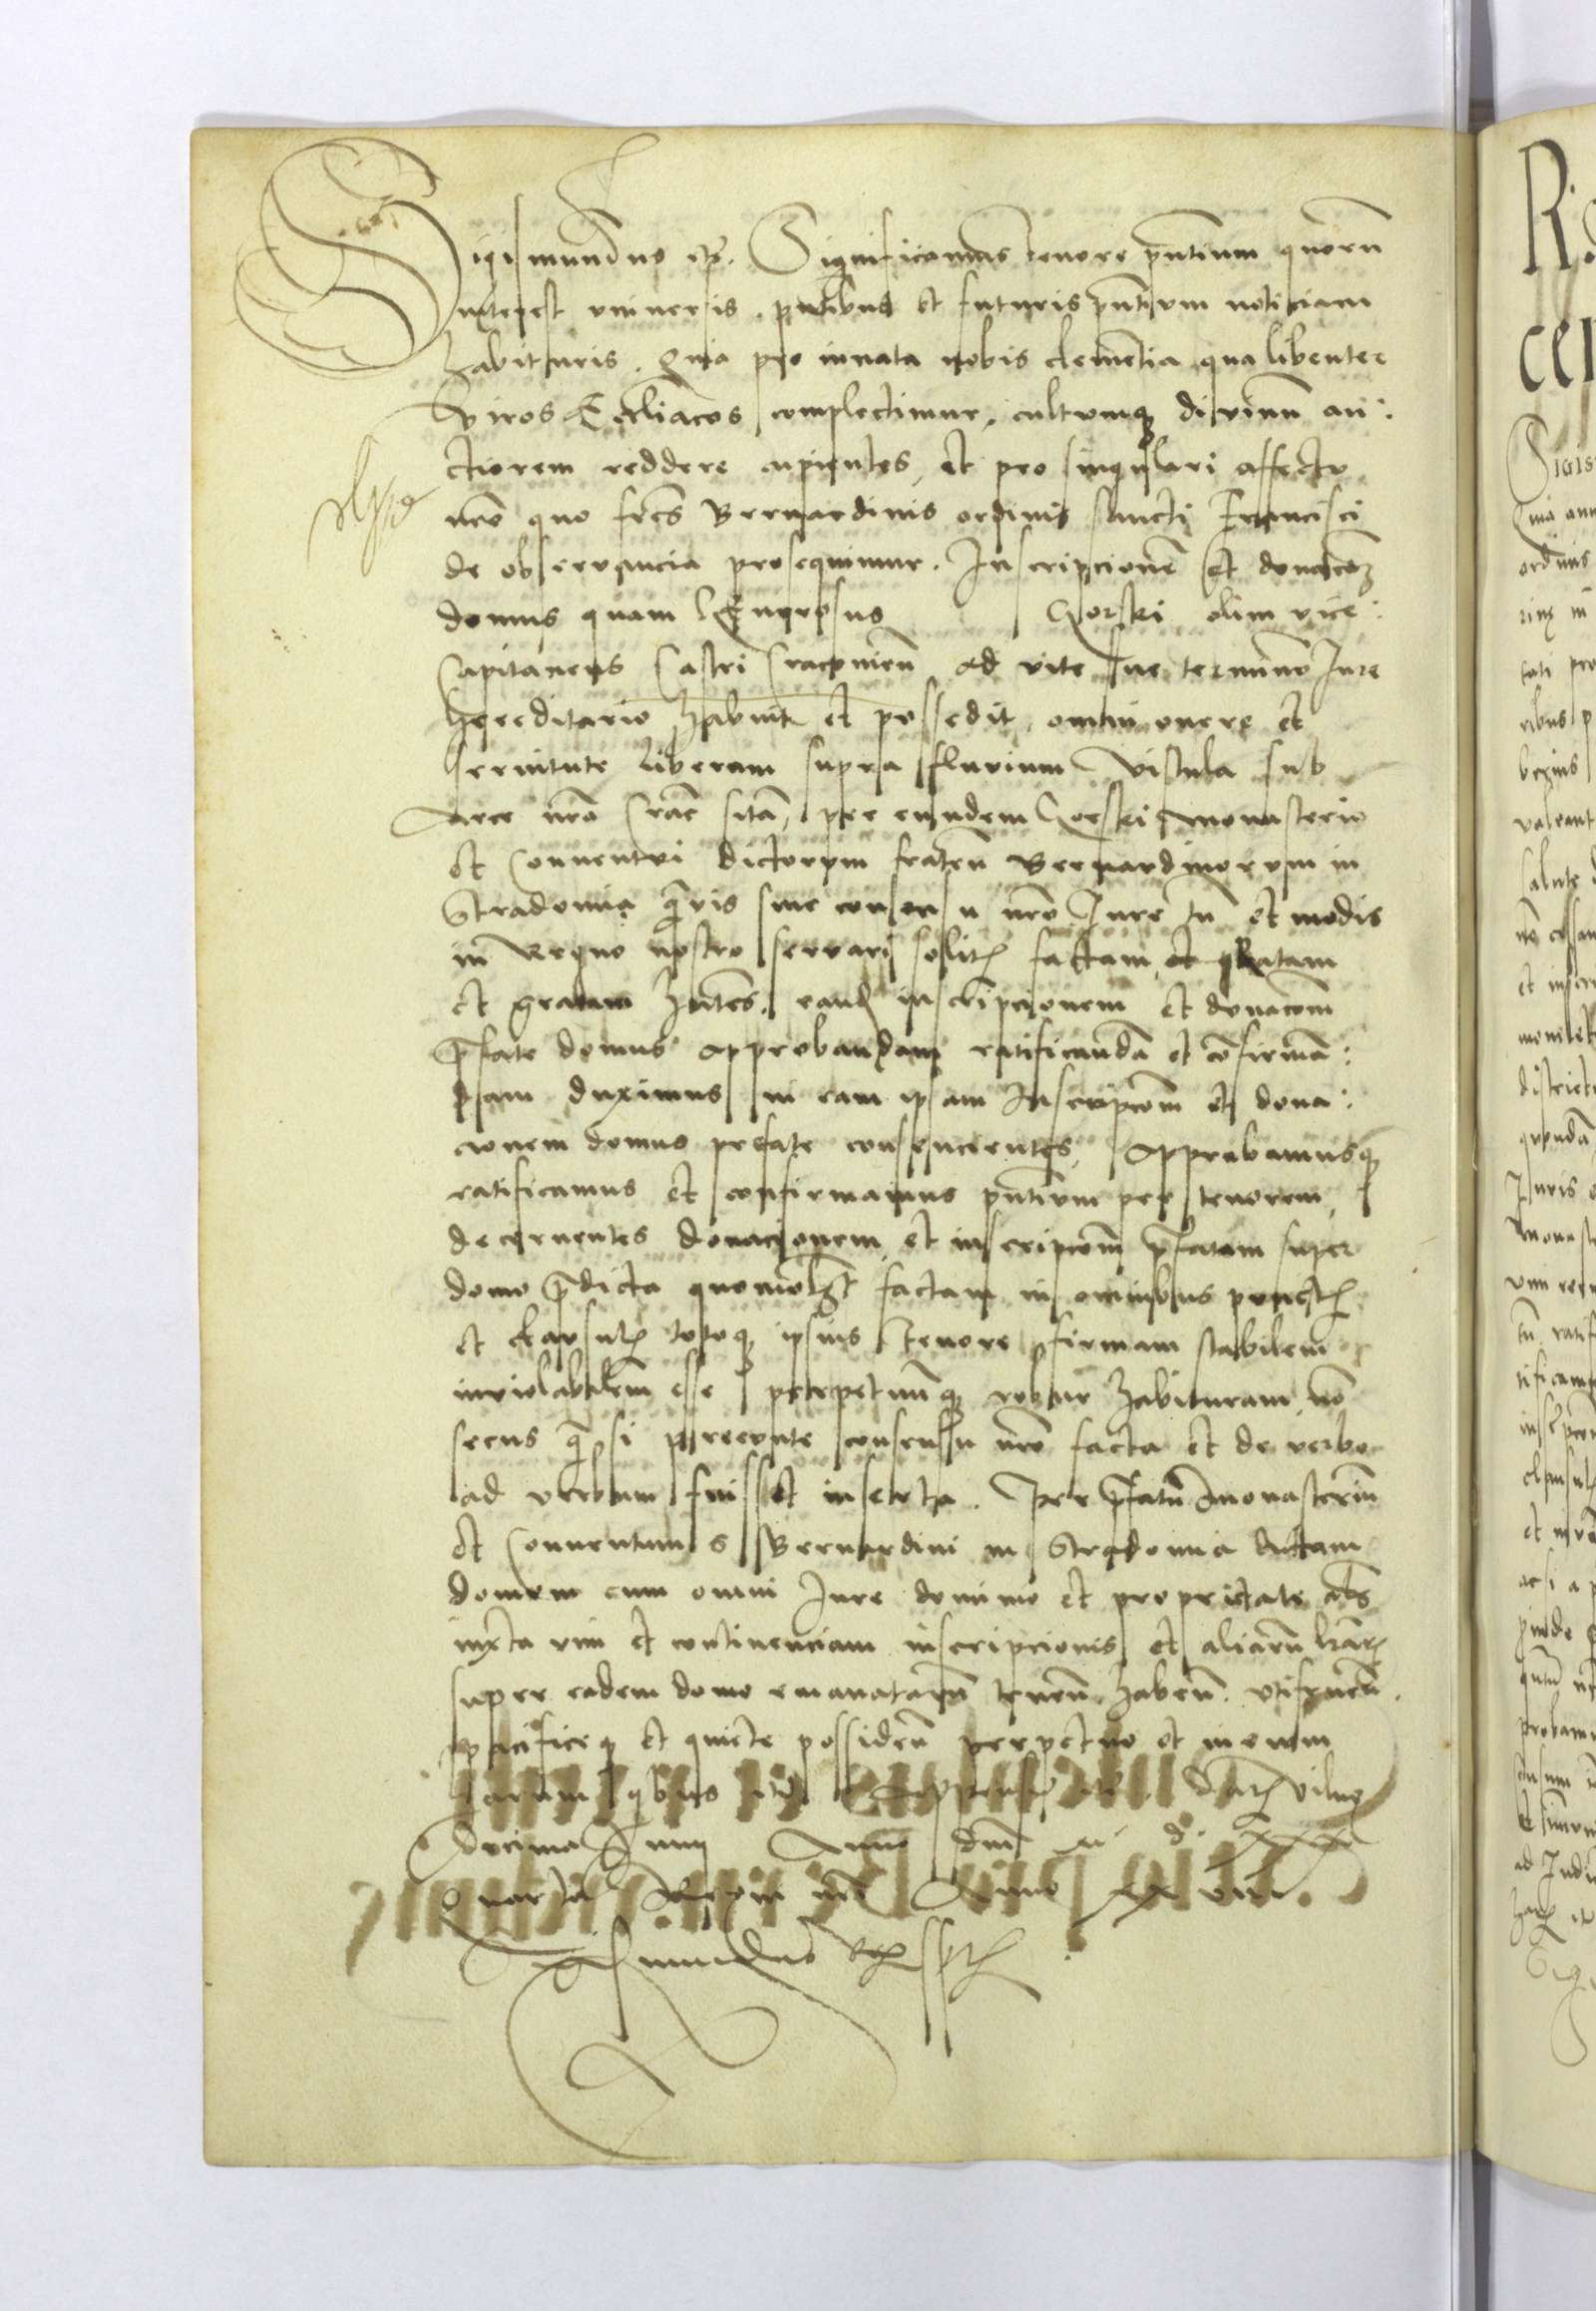 Sigismundus etc. Significamus tenore pntium quorum
interest vniuersis. pntibus et futuris pntium noticiam
habituris. Quia pro innata nobis clementia qua libenter
viros Ecclīacos complectimur, cultumq diuinū au:
ctiorem reddere cupientes, et pro singulari affectu
nrō quo frēs Bernardinis ordinis sancti Francisci
de obseruancia prosequimur. Inscripcionē et donacōē
domus quam Generosus Gorski olim vice:
Capitaneus Castri Cracouien ad vite sue terminū Jure
hereditario habuit et possedit, omni onere et
seruitute liberam supra fluuium Vistula sub
Arce nrā Crac sitā, per eundem Gorski monasterio
et Conuentui dictorum fratrū Bernardinorum in
Stradomia quīs sine consensu nrō Jure tn et modis
in Regno nostro seruari solitis factam, et ratam
et gratam hntēs. eand inscripcionem et donacōm
p̄fate domus approbandam ratificandā et cōfirmā:
dam duximus in eam ipsam Inscripcōm et dona:
cionem domus prefate consencientes, Approbamusq
ratificamus et confirmamus pntium per tenorem,
decernentes donacionem et inscripcōm p̄fatam super
domo p̄dicta quomōlꝫt factam in omnibus punctis
et clausulis totoq ipsius tenore, firmam stabilem
inuiolabilem esse perpetuumq robur habituram, nō
secus q̄ si precunte consensu nrō facta et de verbo
ad verbum fuisset inserta. Per p̄fatū monasteriū
et Conuentum S Bernardini in Stradomia dictam
domum cum omni Jure dominio et proprietate
iuxta vim et continenciam inscripcionis et aliarū lrārū
super eadem domo emanatarū tenen haben. vtifruen
pacificeq et quiete possiden perpetuo et in euum
harum qbus
decima Junij Anno dnī
quarto Regni nrī Anno
Sigismundus Rex sspt